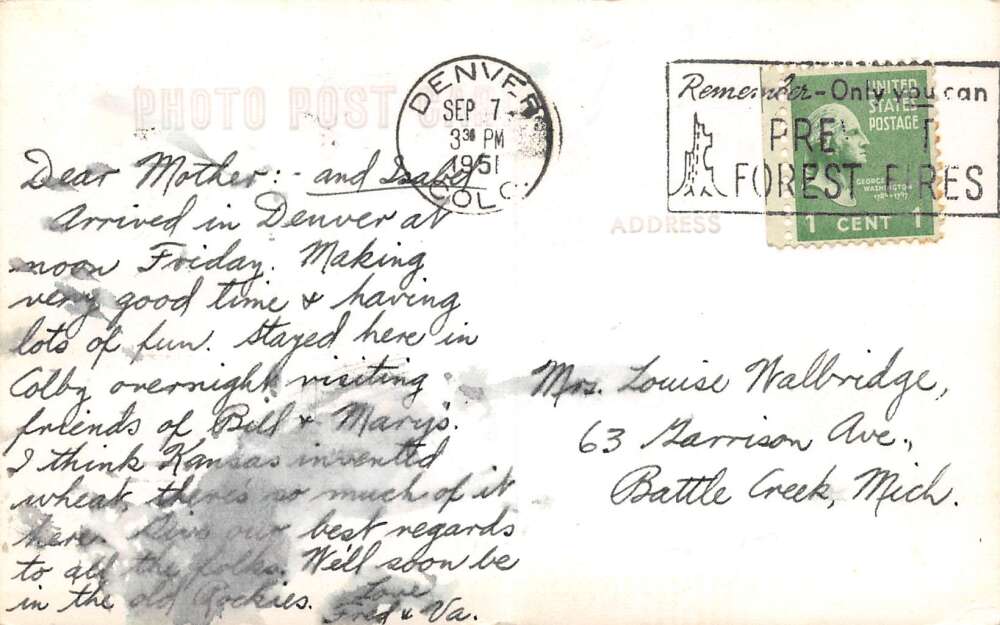 PHOTO POST CARD
DENVER
SEP 7
3 30 PM
1951
COLO.
Remember - Only you can
PREVENT
FOREST FIRES
UNITED
STATES
POSTAGE
GEORGE
WASHINGTON
1 CENT 1
ADDRESS
Dear Mother:- and Isabel
Arrived in Denver at
noon Friday. Making
very good time & having
lots of fun. Stayed here in
Colby overnight visiting
friends of Bill & Mary's.
I think Kansas invented
wheat, there's so much of it
here. Give our best regards
to all the folks. We'll soon be
in the old Rockies. Love
Fred & Va.
Mrs. Louise Walbridge,
63 Garrison Ave.,
Battle Creek, Mich.